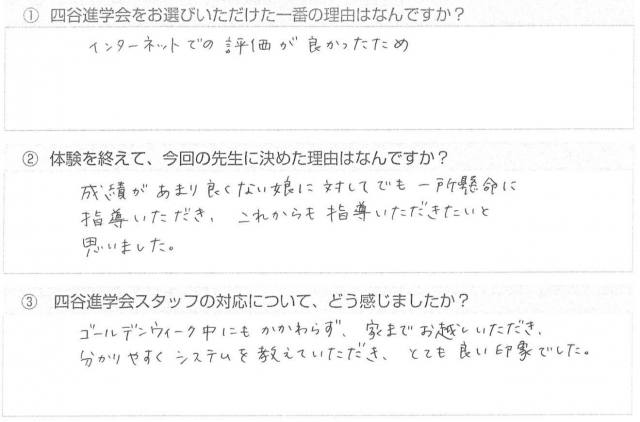 ① 四谷進学会をお選びいただけた一番の理由はなんですか？
インターネットでの評価が良かったため
② 体験を終えて、今回の先生に決めた理由はなんですか？
成績があまり良くない娘に対してでも一所懸命に
指導いただき、これからも指導いただきたいと
思いました。
③ 四谷進学会スタッフの対応について、どう感じましたか？
ゴールデンウィーク中にもかかわらず、家までお越しいただき、
分かりやすくシステムを教えていただき、とても良い印象でした。